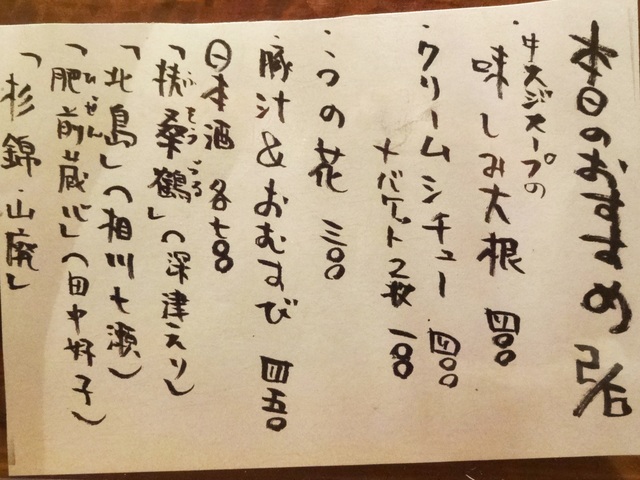 本日のおすすめ
・牛スジスープの
味しみ大根 四〇〇
・クリームシチュー 四〇〇
+バゲット2枚 一〇〇
・うの花 三〇〇
・豚汁&おむすび 四五〇
日本酒 各七〇〇
ふそうづる
「扶桑鶴」(深津えり)
「北島」(相川七瀬)
ひぜん
「肥前蔵心」(田中好子)
「杉錦・山廃」